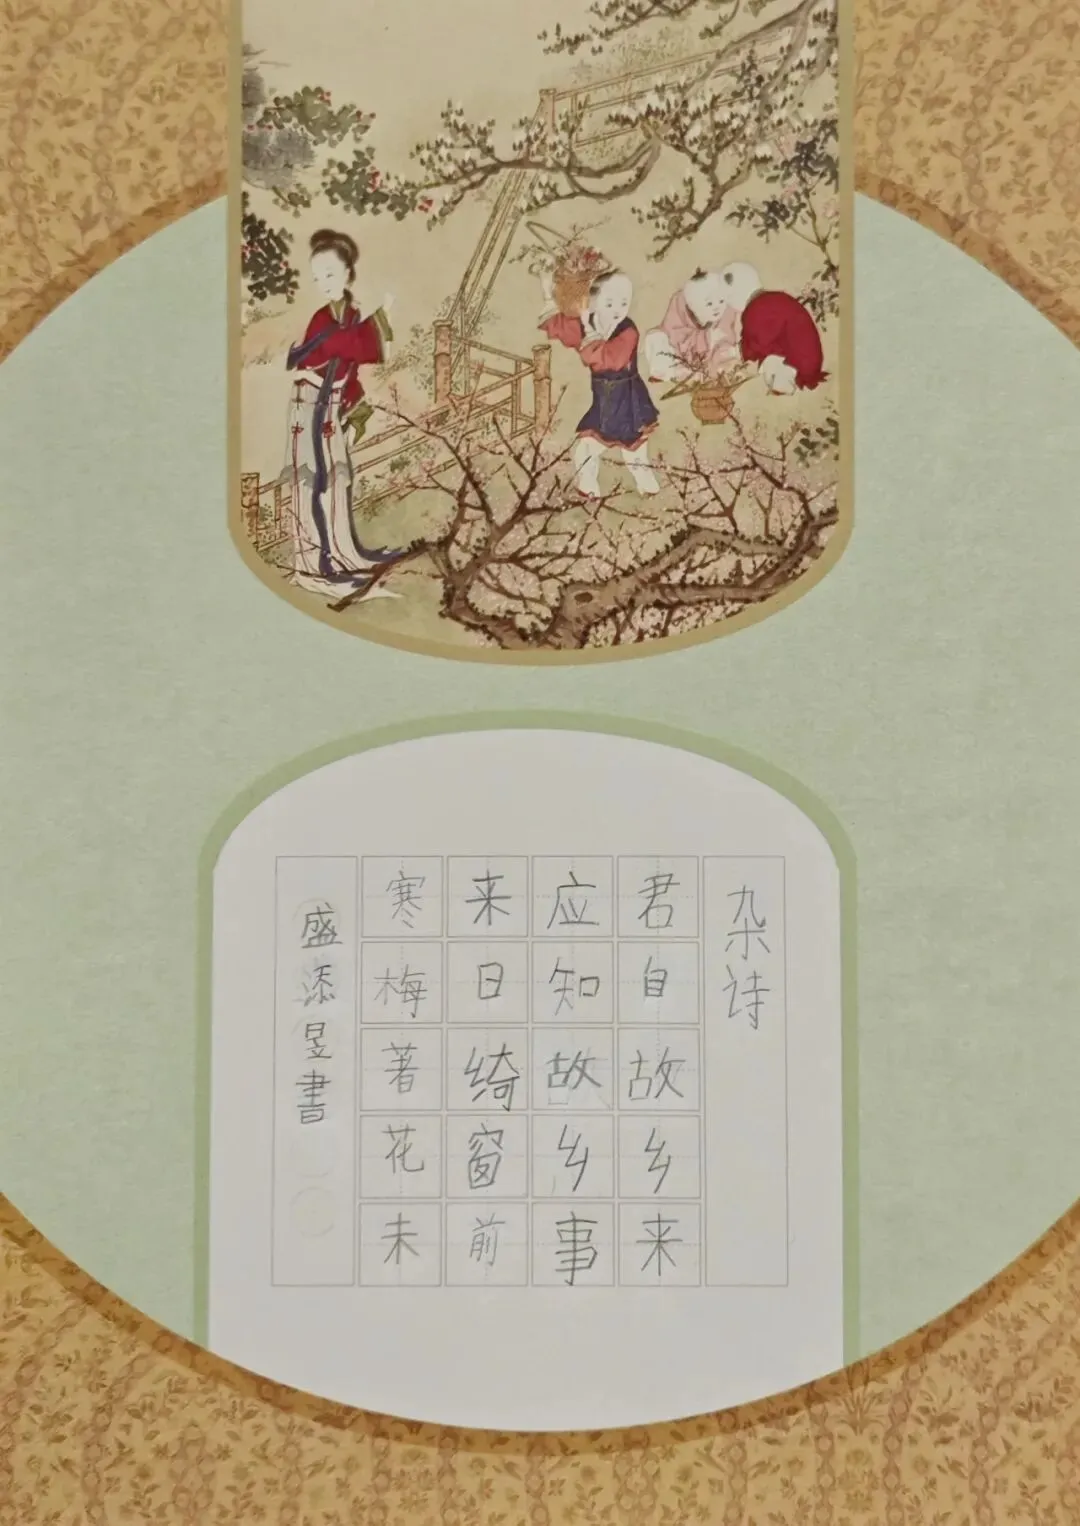 杂诗
君自故乡来
应知故乡事
来日绮窗前
寒梅著花未
盛添昱書